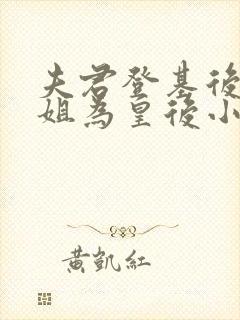 夫君登基後
姐為皇後小
黃凱紅